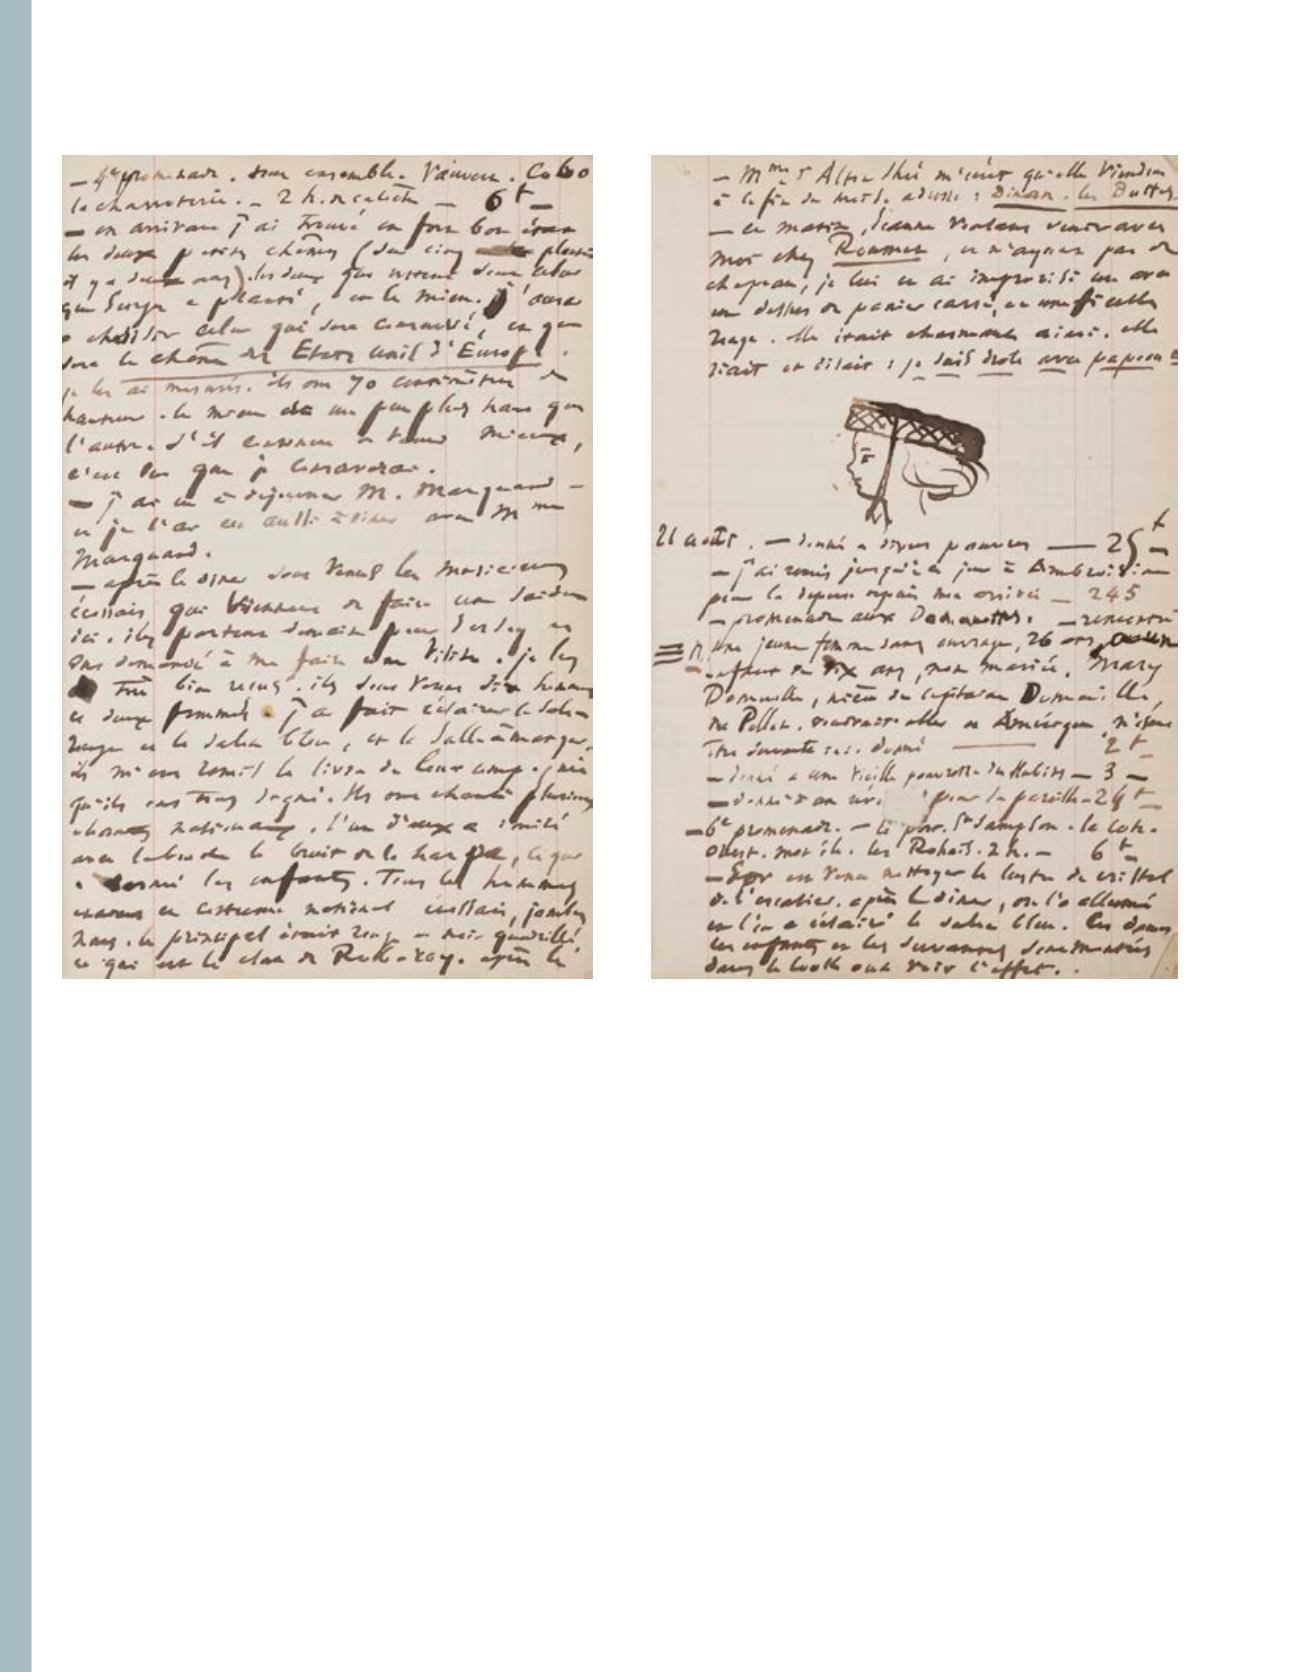 — 4e promenade. tous ensemble. Vauvert. Cobo
la charroterie. — 2 h. de calèche — 6 f —
— en arrivant j'ai trouvé en fort bon état
les deux petits chênes (des cinq plantés
il y a deux ans). les deux qui restent sont celui
que Serge a planté, et le mien. j'aurai
à choisir celui qui sera conservé, et qui
sera le chêne des États unis d'Europe.
je les ai mesurés. ils ont 70 centimètres de
hauteur. le mien est un peu plus haut que
l'autre. s'il continue à venir mieux,
c'est lui que je conserverai.
— j'ai eu à déjeuner M. Marquand —
et je l'ai eu aussi à dîner avec Mme
Marquand.
— après le dîner sont venus les musiciens
écossais qui viennent de faire une saison
ici. ils partent demain pour Jersey et
ont demandé à me faire une visite. je les
ai très bien reçus. ils sont venus dix hommes
et deux femmes. j'ai fait éclairer le salon
rouge et le salon bleu, et la salle à manger.
ils m'ont remis le livre de leur camp. 
qu'ils ont tous signé. Ils ont chanté plusieurs
chants nationaux. l'un d'eux a imité
avec la bouche le bruit de la harpe, ce qui
a charmé les enfants. Tous les hommes
étaient en costume national écossais, jambes
nues. le principal était rouge et noir quadrillé
ce qui est le clan de Rob-roy. après le
— Mme d'Alton Shée m'écrit qu'elle viendra
à la fin du mois. adresse : Dinan. les Buttes
— ce matin, Jeanne voulant venir avec
moi chez Roumer, et n'ayant pas de
chapeau, je lui en ai improvisé un avec
un dessus de panier carré, et une ficelle
rouge. elle était charmante ainsi. elle
riait et disait : je suis drôle avec papeau
21 août. — donné à divers pauvres — 25 f —
— j'ai remis jusqu'à ce jour à Ambroisine
pour la dépense depuis mon arrivée — 245
— promenade aux Damouettes. — rencontré
une jeune femme sans ouvrage, 26 ans,
enfant de dix ans, non mariée. Mary
Domaille, nièce du capitaine Domaille,
 n'étant
 donné — 2 f
— donné à une vieille pauvresse du Hubits — 3 —
— donné à un pour la pareille — 24 f —
— 6e promenade. — le port. St Sampson. la côte.
ouest. les Rohais. 2 h. — 6 f —
— est venu nettoyer le lustre de cristal
de l'escalier. après le dîner, on l'a allumé
et l'on a éclairé le salon bleu. les dames
les enfants et les servantes sont montés
dans le look out voir l'effet.